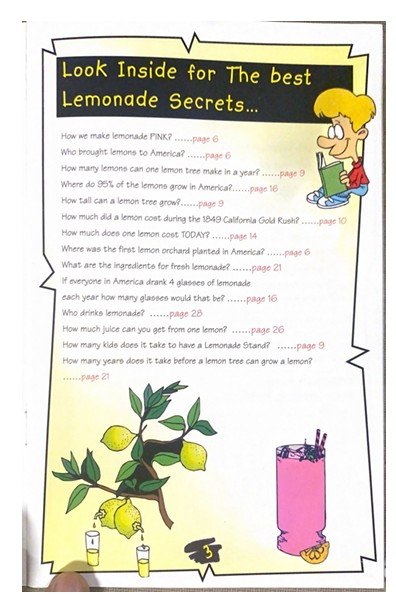 Look Inside for The best
Lemonade Secrets...
How we make lemonade PINK? ......page 6
Who brought lemons to America? ......page 6
How many lemons can one lemon tree make in a year? ......page 9
Where do 95% of the lemons grow in America?......page 16
How tall can a lemon tree grow?......page 9
How much did a lemon cost during the 1849 California Gold Rush? ......page 10
How much does one lemon cost TODAY? ......page 14
Where was the first lemon orchard planted in America? ......page 6
What are the ingredients for fresh lemonade? ......page 21
If everyone in America drank 4 glasses of lemonade
each year how many glasses would that be? ......page 16
Who drinks lemonade? ......page 28
How much juice can you get from one lemon? ......page 26
How many kids does it take to have a Lemonade Stand? ......page 9
How many years does it take before a lemon tree can grow a lemon?
......page 21
3